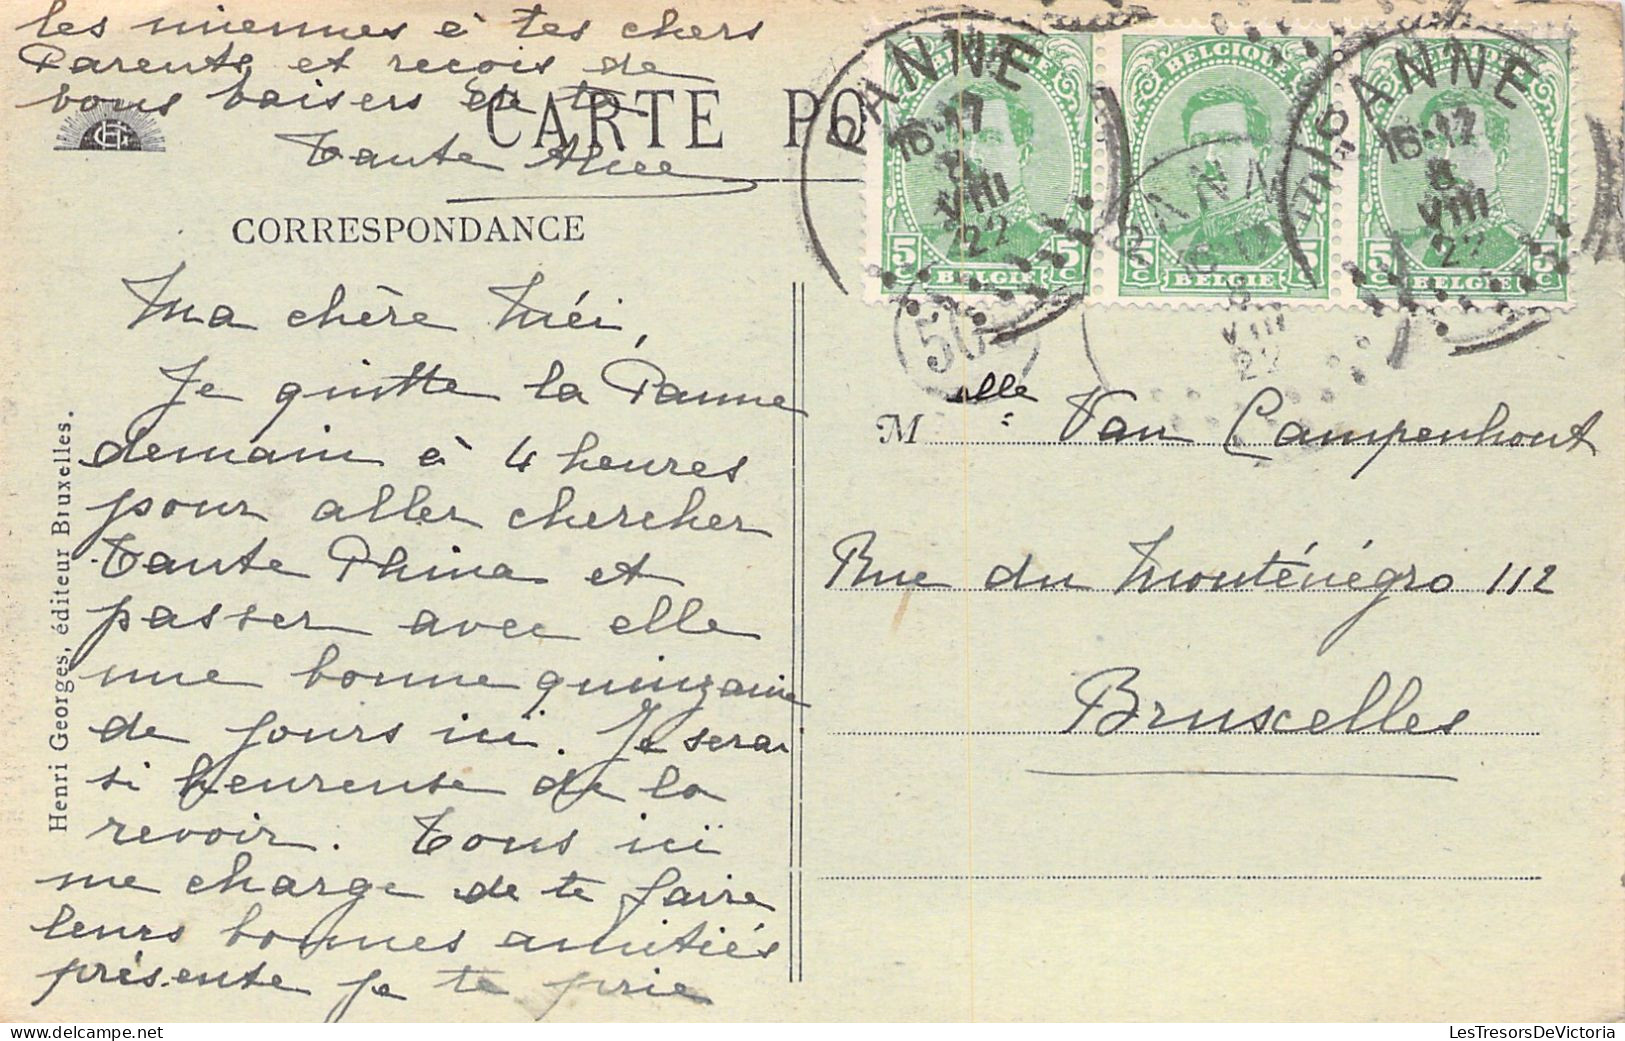 les miennes à tes chers
Parents et reçois de
bons baisers de ta
Tante Alice
CARTE PO
CORRESPONDANCE
Ma chère Méi,
Je quitte la Panne
demain à 4 heures
pour aller chercher
Tante Phina et
passer avec elle
une bonne quinzaine
de jours ici. Je serai
si heureuse de la
revoir. Tous ici
me charge de te faire
leurs bonnes amitiés
présente je te prie
Henri Georges, éditeur Bruxelles.
BELGIQUE
5c BELGIE 5c
BELGIQUE
5c BELGIE 5c
BELGIQUE
5c BELGIE 5c
PANNE
16-17
8
VIII
22
PANNE
16-17
8
VIII
22
PANNE
8
VIII
22
Melle Van Campenhout
Rue du Monténégro 112
Bruxelles
LesTresorsDeVictoria
www.delcampe.net